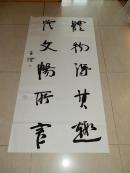 體物得其趣
文暢所言